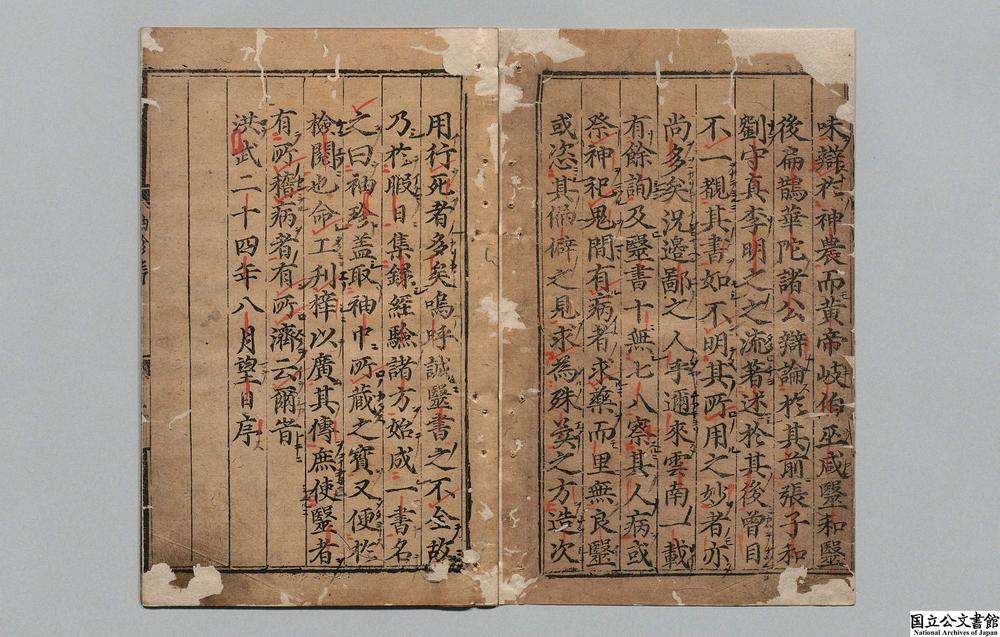 味辯於神農而黄帝岐伯巫咸醫和醫
後扁鵲華陀諸公辯論於其前張子和
劉守真李明之之流著述於其後曾目
不一覩其書如不明其所用之妙者亦
尚多矣况邊鄙之人乎邇來雲南一載
有餘詢及醫書十無七八察其人病或
祭神祀鬼間有病者求藥而里無良醫
或恣其偏僻之見求為殊異之方造次
用行死者多矣嗚呼誠醫書之不全故
乃於暇日集録經驗諸方始成一書名
之曰袖珍盖取袖中所蔵之寶又便於
檢閱也命工刋梓以廣其傳庶使醫者
有所稽病者有所濟云爾旹
洪武二十四年八月望日序
国立公文書館
National Archives of Japan